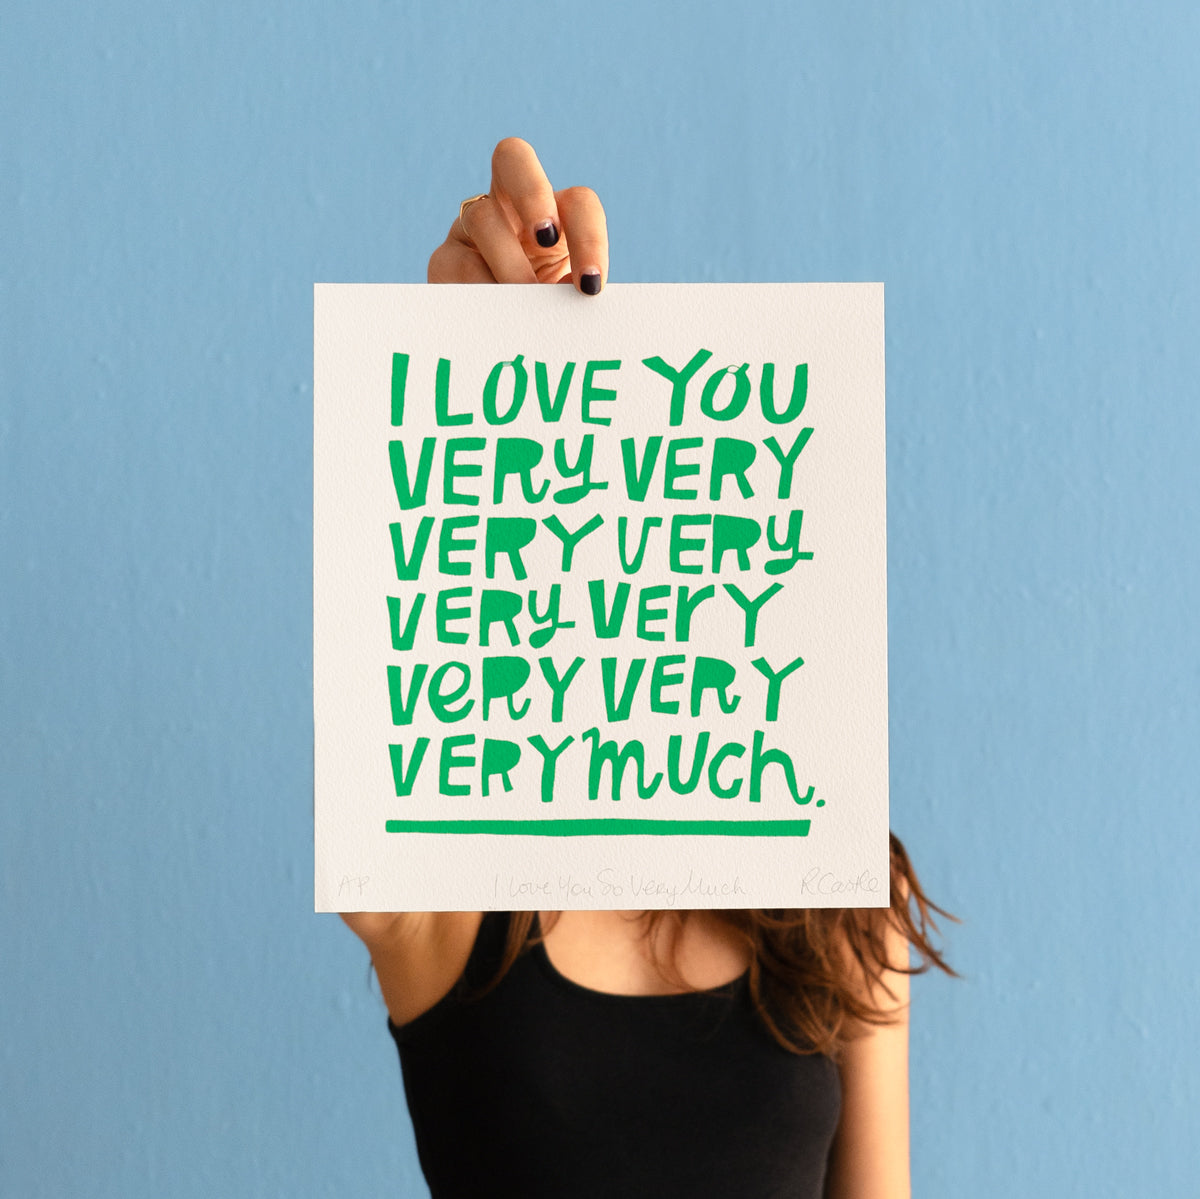 I LOVE YOU
VERY VERY
VERY VERY
VERY VerY
VeRY VERY
VERY much.
AP I Love You So Very Much R Castle